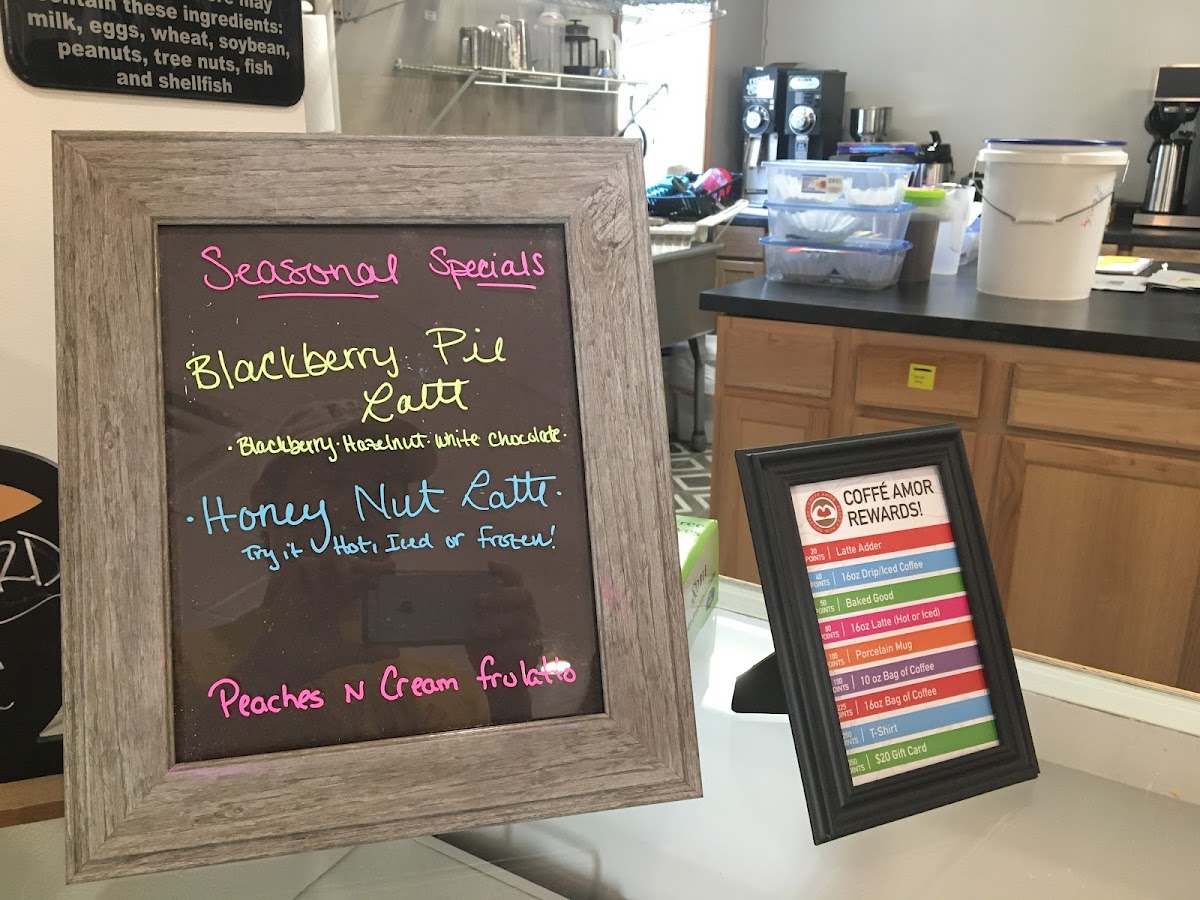 these ingredients:
milk, eggs, wheat, soybean,
peanuts, tree nuts, fish
and shellfish
Seasonal Specials
Blackberry Pie
Latte
·Blackberry·Hazelnut·White Chocolate·
·Honey Nut Latte·
Try it Hot, Iced or Frozen!
Peaches N Cream frulatto
COFFÉ AMOR
REWARDS!
20 POINTS | Latte Adder
40 POINTS | 16oz Drip/Iced Coffee
50 POINTS | Baked Good
POINTS | 16oz Latte (Hot or Iced)
Porcelain Mug
10 oz Bag of Coffee
16oz Bag of Coffee
T-Shirt
$20 Gift Card